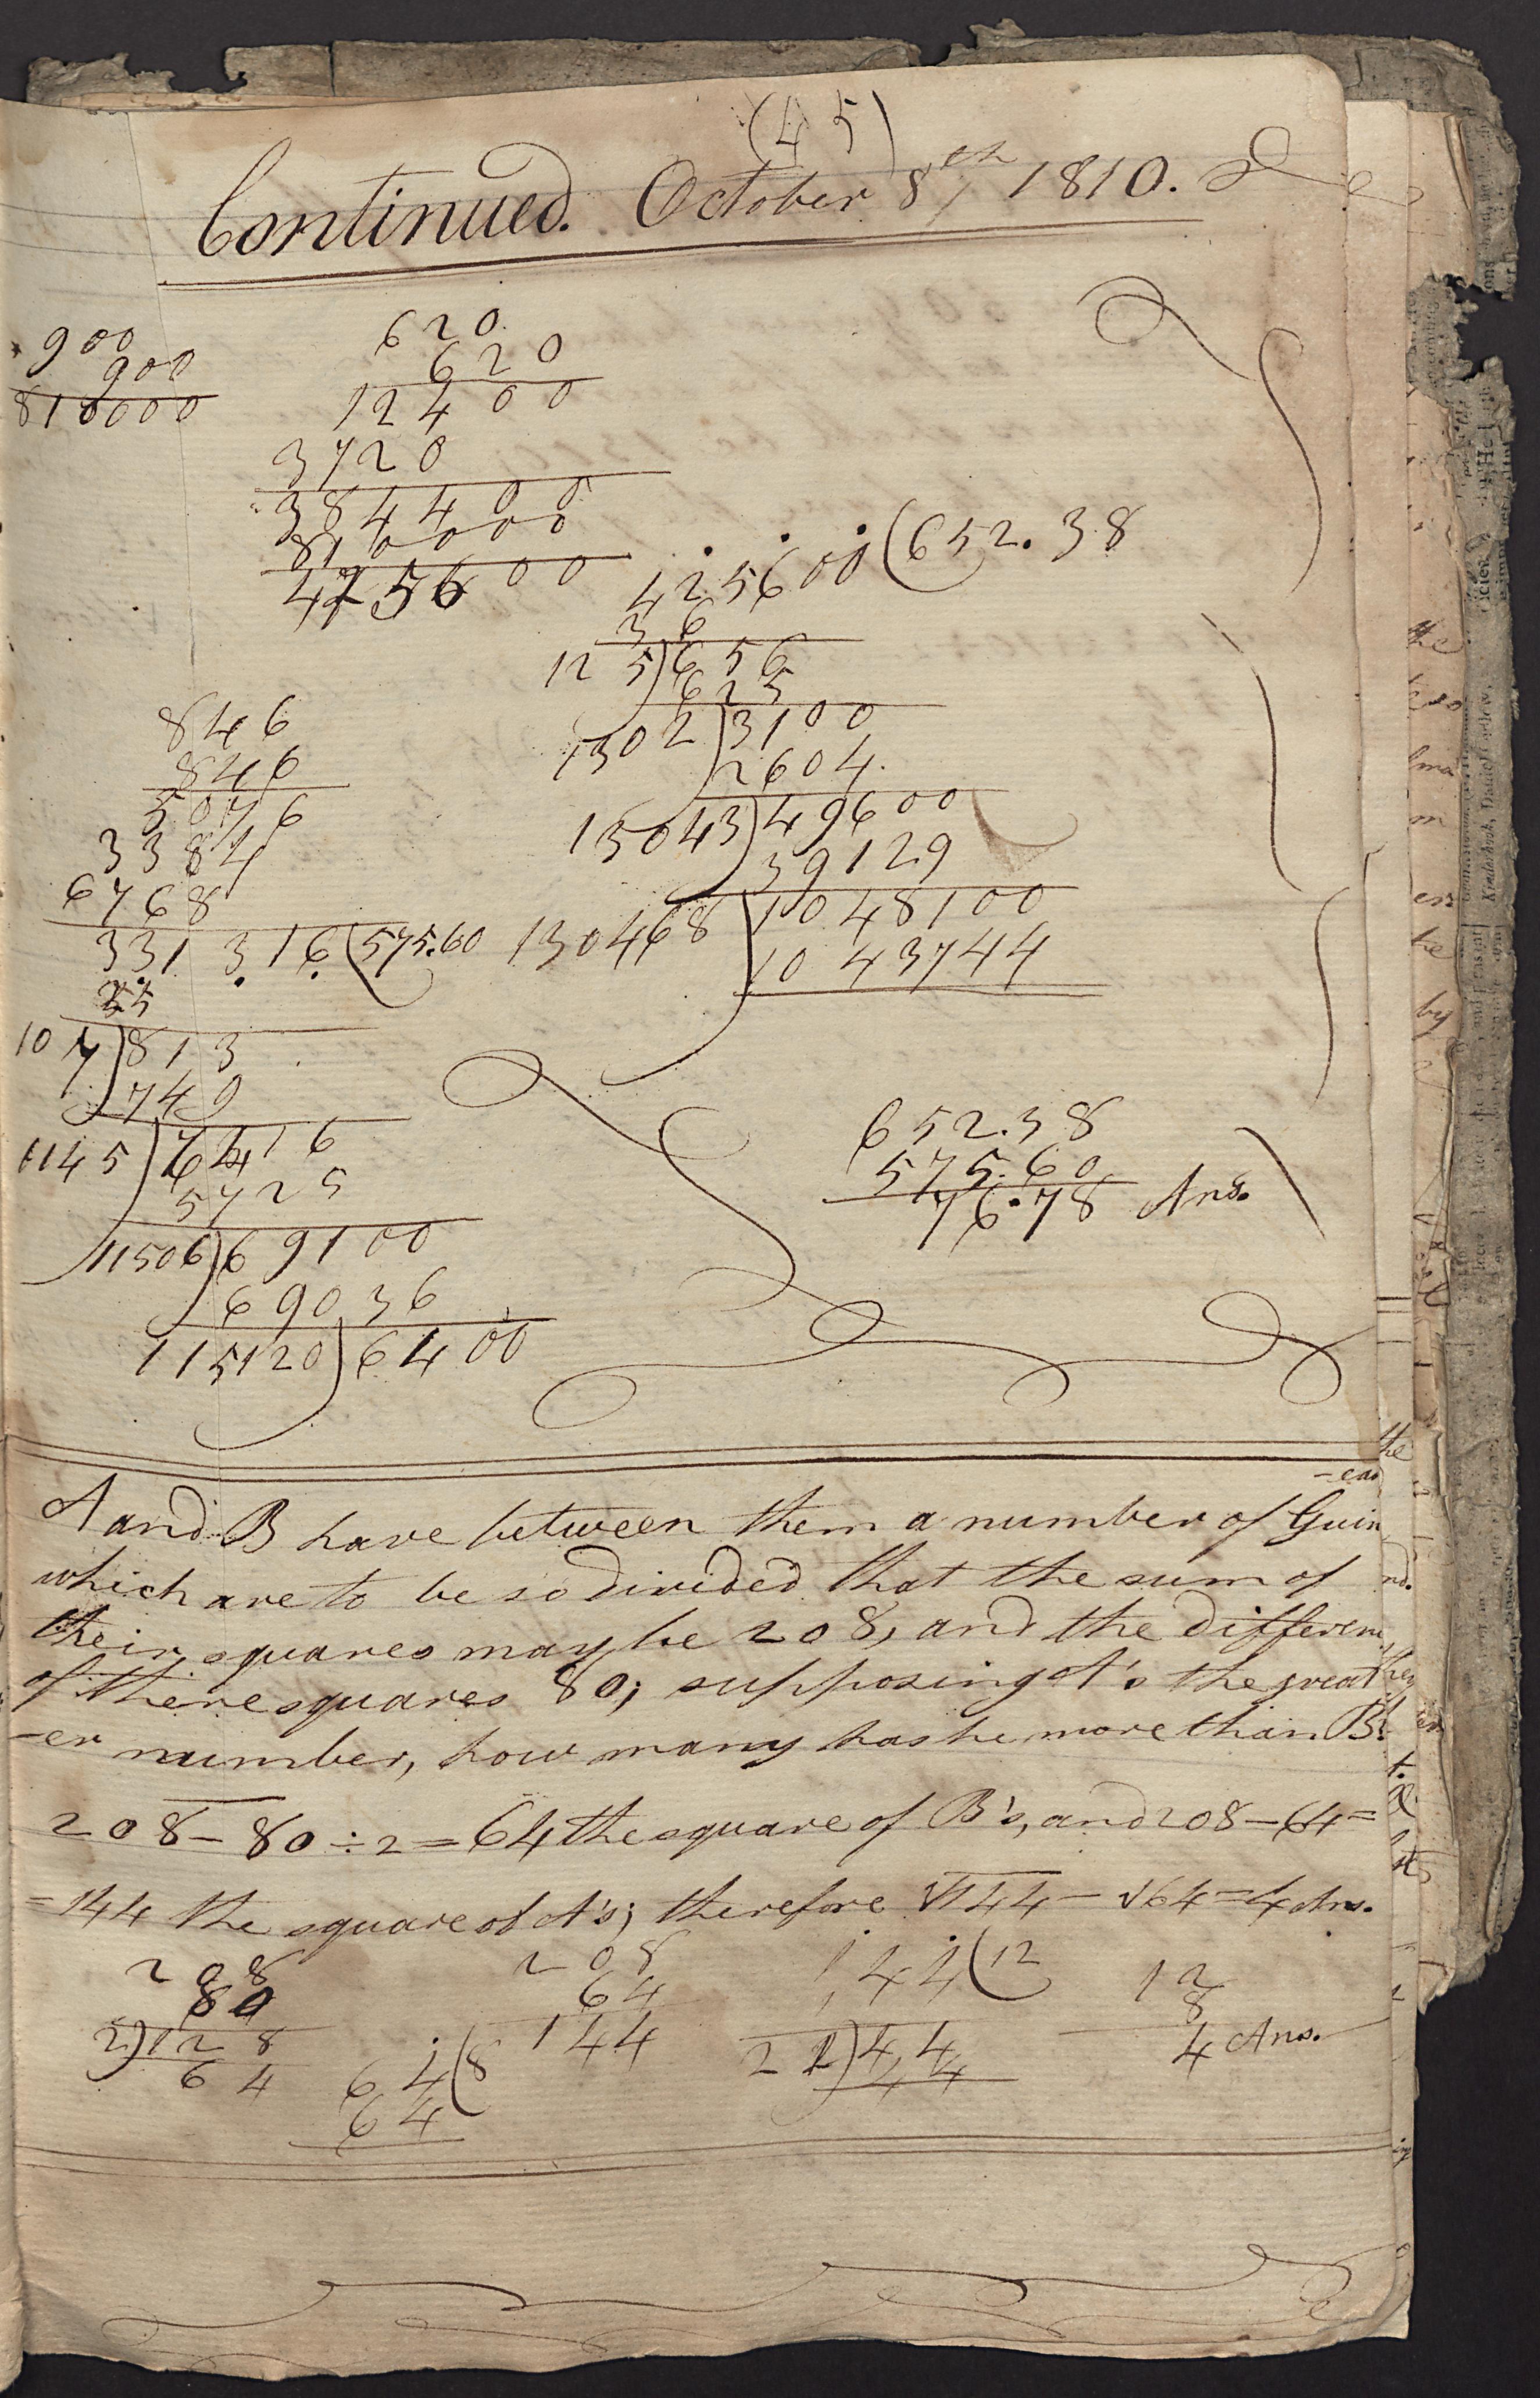 (45)
Continued. October 8th 1810.
900
900
810000
620
620
12400
3720
384400
810000
425600
425600(652.38
36
125)656
625
1302)3100
2604
13043)49600
39129
130468)1048100
1043744
846
846
5076
3384
6768
331316(575.60
25
107)813
749
1145)6416
5725
11506)69100
69036
115120)6400
652.38
575.60
76.78 Ans.
A and B have between them a number of Guin
-eas
which are to be so divided that the sum of
their squares may be 208, and the differen
of there squares 80; supposing A's the great
-er number, how many has he more than B?
208-80÷2=64 the square of B's, and 208-64=
=144 the square of A's; therefore √144-√64=4 Ans.
208
80
2)128
64
64(8
64
208
64
144
144(12
1
22)44
44
12
8
4 Ans.